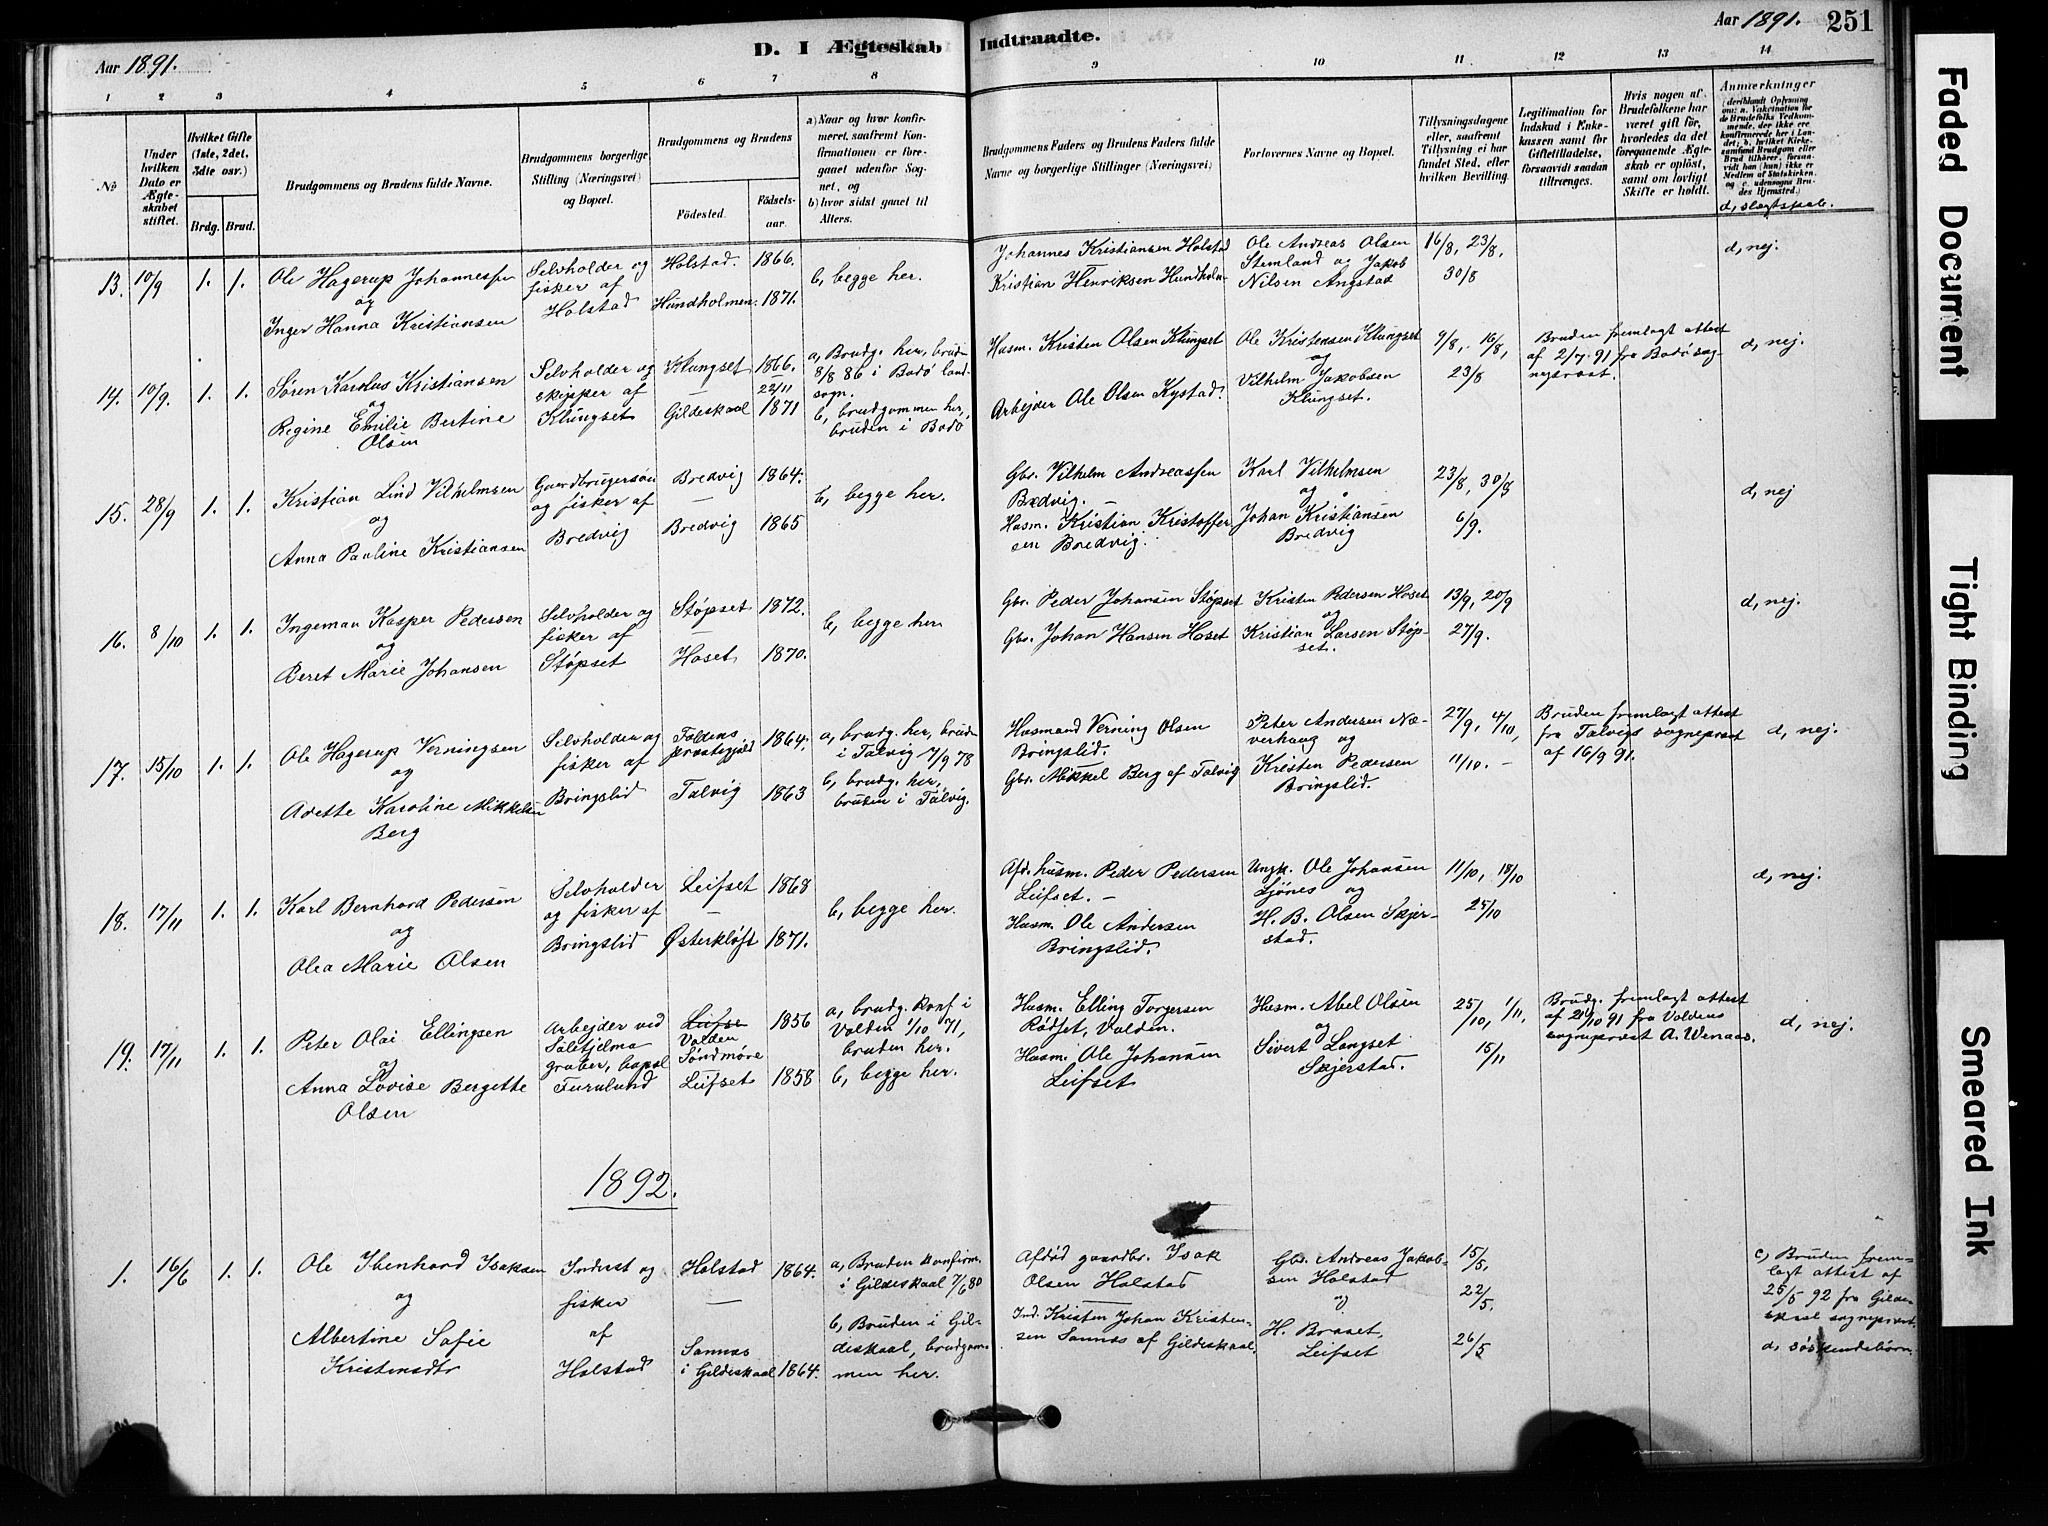 Aar 1891.
D. I Ægteskab Indtraadte.
Aar 1891. 251
1 2 3 4 5 6 7 8 9 10 11 12 13 14
No
Under hvilken Dato er Ægteskabet stiftet.
Hvilket Gifte (1ste, 2det, 3die osv.)
Brdg. Brud.
Brudgommens og Brudens fulde Navne.
Brudgommens borgerlige Stilling (Næringsvei) og Bopæl.
Brudgommens og Brudens
Födested.
Födsels-aar.
a) Naar og hvor konfirmeret, saafremt Konfirmationen er foregaaet udenfor Sognet, og
b) hvor sidst gaaet til Alters.
Brudgommens Faders og Brudens Faders fulde Navne og borgerlige Stillinger (Næringsvei)
Forlovernes Navne og Bopæl.
Tillysningsdagene eller, saafremt Tillysning ei har fundet Sted, efter hvilken Bevilling.
Legitimation for Indskud i Enkekassen samt for Giftetilladelse, forsaavidt saadan tiltrænges.
Hvis nogen af Brudefolkene har været gift før, hvorledes da det foregaaende Ægteskab er oplöst, samt om lovligt Skifte er holdt.
Anmærkninger
(deriblandt Oplysning om: a. Vakcination for de Brudefolks Vedkommende, der ikke ere konfirmerede her i Landet; b. hvilket Kirkesamfund Brudgom eller Brud tilhörer, forsaavidt han (hun) ikke er Medlem af Statskirken, og c. udensogns Brudes Hjemsted.)
d, slægtskab.
13. 10/9 1. 1.
Ole Hagerup Johannessen
og
Inger Hanna Kristiansen
Selvholder og
fisker af
Holstad
Holstad. 1866.
Hundholmen 1871.
b, begge her.
Johannes Kristiansen Holstad
Kristian Henriksen Hundholm.
Ole Andreas Olsen
Stemland og Jakob
Nilsen Angstad
16/8, 23/8,
30/8
d, nej.
14. 10/9. 1. 1.
Sören Karolus Kristiansen
og
Regine Emilie Bertine
Olsen
Selvholder og
skipper af
Klungset
Klungset 1866.
— 22/11
Gildeskaal 1871
a, Brudg. her, bruden
8/8 86 i Bodö land-
sogn.
b, brudgommen her,
bruden i Bodö
Husm. Kristen Olsen Klungset
Arbejder Ole Olsen Kystad.
Ole Kristensen Klungset
og
Vilhelm Jakobsen
Klungset.
9/8, 16/8,
23/8
Bruden fremlagt attest
af 2/7 91 fra Bodö sog-
neprest.
d, nej.
15. 28/9 1. 1.
Kristian Lind Vilhelmsen
og
Anna Pauline Kristiansen
Gaardbrugersön
og fisker af
Bredvig
Bredvig 1864.
—
Bredvig 1865
b, begge her.
Gbr. Vilhelm Andreassen
Bredvig. —
Husm. Kristian Kristoffer-
sen Bredvig.
Karl Vilhelmsen
og
Johan Kristiansen
Bredvig
23/8, 30/8
6/9.
d, nej
16. 8/10 1. 1.
Ingeman Kasper Pedersen
og
Beret Marie Johansen
Selvholder og
fisker af
Støpset
Støpset 1872.
—
Hoset 1870.
b, begge her
Gbr. Peder Johansen Støpset
Gbr. Johan Hansen Hoset
Kristen Pedersen Hoset
og
Kristian Larsen Støp-
set.
13/9, 20/9
27/9.
d, nej.
17. 15/10 1. 1.
Ole Hagerup Verningsen
og
Arette Karoline Mikkelsen
Berg
Selvholder og
fisker af
Bringslid
Foldens
præstegjeld 1864.
Talvig 1863
a, brudg. her, bruden
i Talvig 7/9 78
b, brudg. her,
bruden i Talvig.
Husmand Verning Olsen
Bringslid.
Gbr. Mikkel Berg af Talvig
Peter Andersen Næ-
verhaug og
Kristen Pedersen
Bringslid.
27/9, 4/10,
11/10. —
Bruden fremlagt attest
fra Talvigs sogneprest
af 16/9 91.
d, nej.
18. 17/11 1. 1.
Karl Bernhard Pedersen
og
Olea Marie Olsen
Selvholder
og fisker af
Bringslid
Leifset 1868
—
Østerkløft 1871.
b, begge her.
Afd. husm. Peder Pedersen
Leifset. —
Husm. Ole Andersen
Bringslid.
Ungk. Ole Johansen
Ljönes og
H. B. Olsen Skjer-
stad.
11/10, 18/10
25/10
d, nej.
19. 17/11 1. 1.
Peter Olai Ellingsen
og
Anna Lovise Bergette
Olsen
Arbejder ved
Suletjelma
gruber, bopæl
Furulund
Leifse
Volden
Söndmöre 1856
Leifset 1858
a, brudg. konf i
Volden 1/10 71,
bruden her.
b, begge her.
Husm. Elling Torgersen
Rödset, Volden.
Husm. Ole Johansen
Leifset
Husm. Abel Olsen
og
Sivert Langset
Skjerstad.
25/10, 1/11,
15/11
Brudg. fremlagt attest
af 21/10 91 fra Voldens
sogneprest A. Wenaas.
d, nej.
1892.
1. 16/6 1. 1.
Ole Ibenhard Isaksen
og
Albertine Sofie
Kristensdtr
Inderst og
fisker
af
Holstad
Holstad 1864.
—
Sannæs
i Gildeskaal 1864.
a, Bruden konfirm.
i Gildeskaal 7/6 80
b, Bruden i Gil-
deskaal, brudgom-
men her.
Afdød gaardbr. Isak
Olsen Holstad
Ind. Kristen Johan Kristen-
sen Sannæs af Gildeskaal.
Gbr. Andreas Jakob-
sen Holstad
og
H. Braset,
Leifset
15/5,
22/5.
26/5
c, Bruden frem-
lagt attest af
25/5 92 fra Gilde-
skaal sogneprest.
d, söskendebörn.
Faded Document
Tight Binding
Smeared Ink